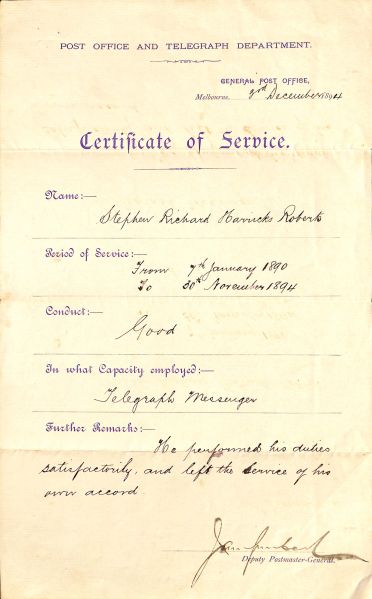 POST OFFICE AND TELEGRAPH DEPARTMENT.
GENERAL POST OFFICE,
Melbourne, 3rd December 1894
Certificate of Service.
Name:—
Stephen Richard Harricks Roberts
Period of Service:—
From 7th January 1890
To 30th November 1894
Conduct:—
Good
In what Capacity employed:—
Telegraph Messenger
Further Remarks:—
He performed his duties
satisfactorily, and left the service of his
own accord.
Deputy Postmaster-General.